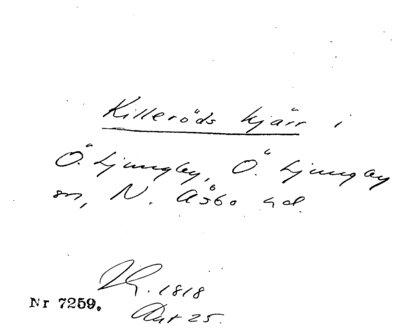 Killeröds kjärr i
Ö. Ljungby, Ö. Ljungby
sn, N. Åsbo hd.
1818
Nr 7259.
Akt 25.